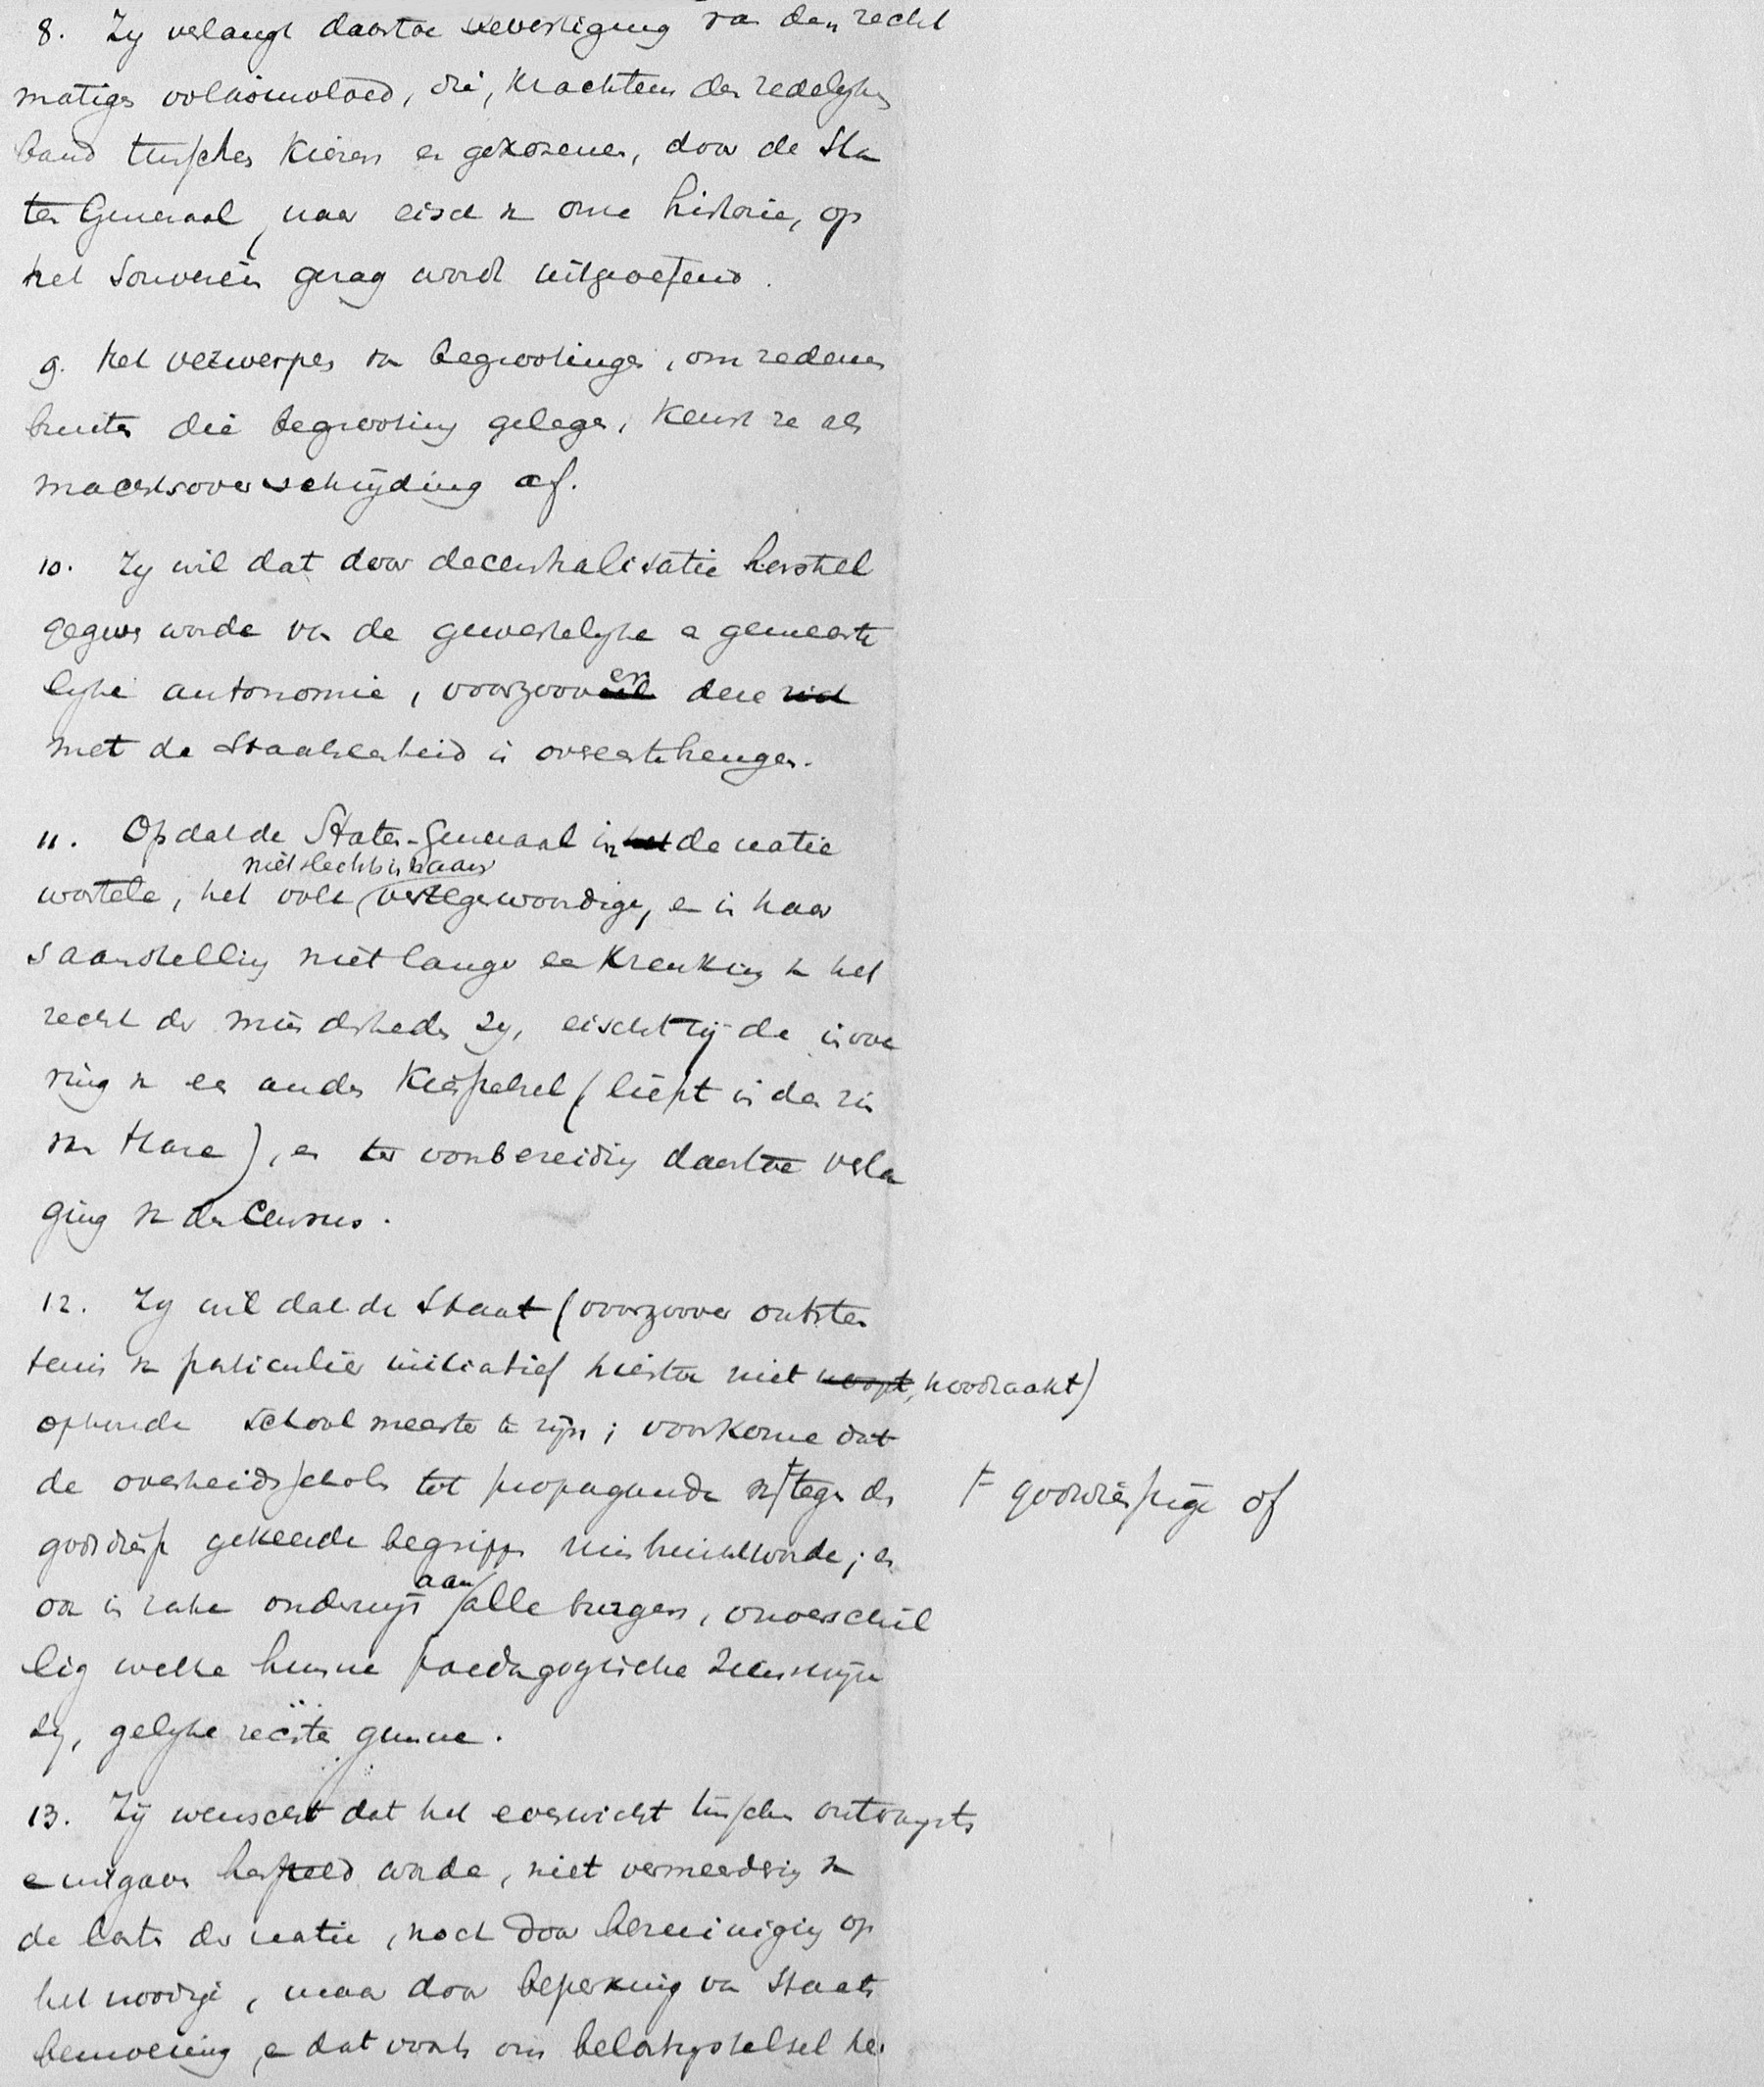 8. Zy verlangt daartoe bevestiging van den recht
matigen volksinvloed, die, krachtens den redelyken
band tusschen kiezers en gekozenen, door de Sta
ten Generaal, naar eisch van onze historie, op
het Souverein gezag wordt uitgeoefend.
9. Het verwerpen van begrootingen, om redenen
buiten die begrooting gelegen, keurt ze als
machtsoverschrijding af.
10. Zy wil dat door decentralisatie herstel
gegeven worde van de gewestelyke en gemeente
lyke autonomie, voorzoover deze
met de Staatseenheid is overeentebrengen.
11. Opdat de Staten-Generaal in de natie
wortele, het volk niet slechts in naam vertegenwoordige, en in haar
saamstelling niet langer een krenking van het
recht der minderheden zy, eischt zij de invoe
ring van een ander Kiesstelsel (liefst in den zin
van Hare), en ter voorbereiding daartoe verla
ging van den Census.
12. Zy wil dat de Staat (voorzoover ontsten
tenis van particulier initiatief hiertoe niet noopt, noodzaakt)
ophoude schoolmeester te zijn; voorkome dat
de overheidsschool tot propaganda van Ⱶ tegen de
godsdienst gekeerde begrippen misbruikt worde; en
ook in zake onderwijs aan alle burgers, onverschil
lig welke hunne paedagogische zienswijze
zy, gelyke rechten gunne.
Ⱶ godsdienstige of
13. Zij wenscht dat het evenwicht tusschen ontvangsten
en uitgaven hersteld worde, niet vermeerdering van
de lasten der natie, noch door bezuiniging op
het noodige, maar door beperking van Staats
bemoeiing, en dat voorts ons belastingstelsel her